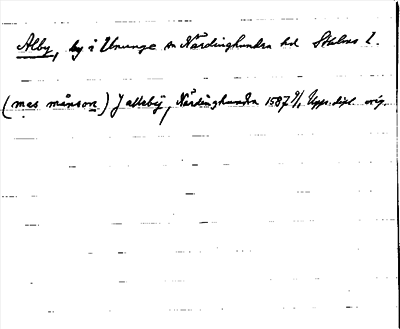 Alby, by i Ununge sn Närdinghundra hd Sthlms l.
(mas månson) J alleby, Närdinghundra 1587 9/1 Upps. dipl. orig.